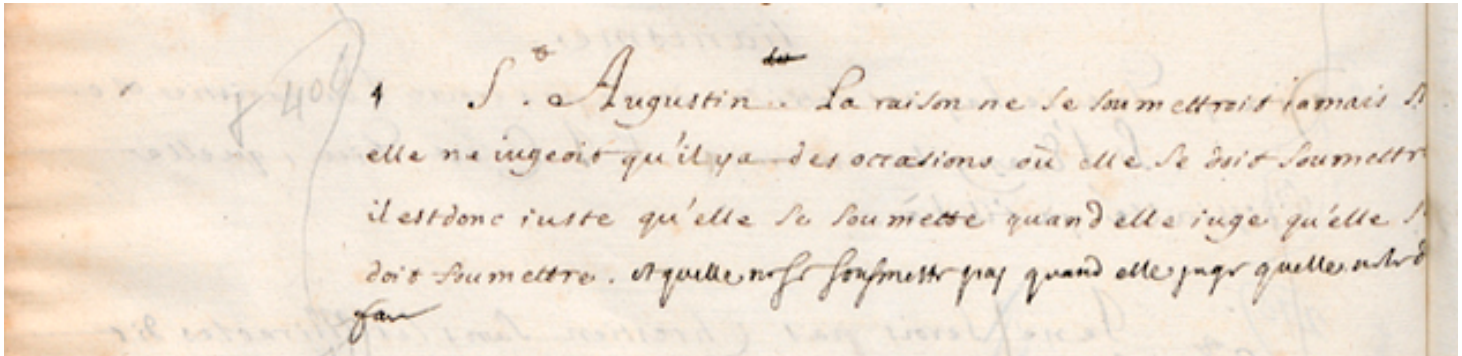 4 S.t Augustin. dit La raison ne se soumettroit iamais si
elle ne iugeoit qu'il ya des occasions où elle se doit soumettre
il est donc iuste qu'elle se soumette quand elle iuge qu'elle se
doit soumettre. et quelle ne se sousmette pas quand elle juge quelle ne le doit
faire